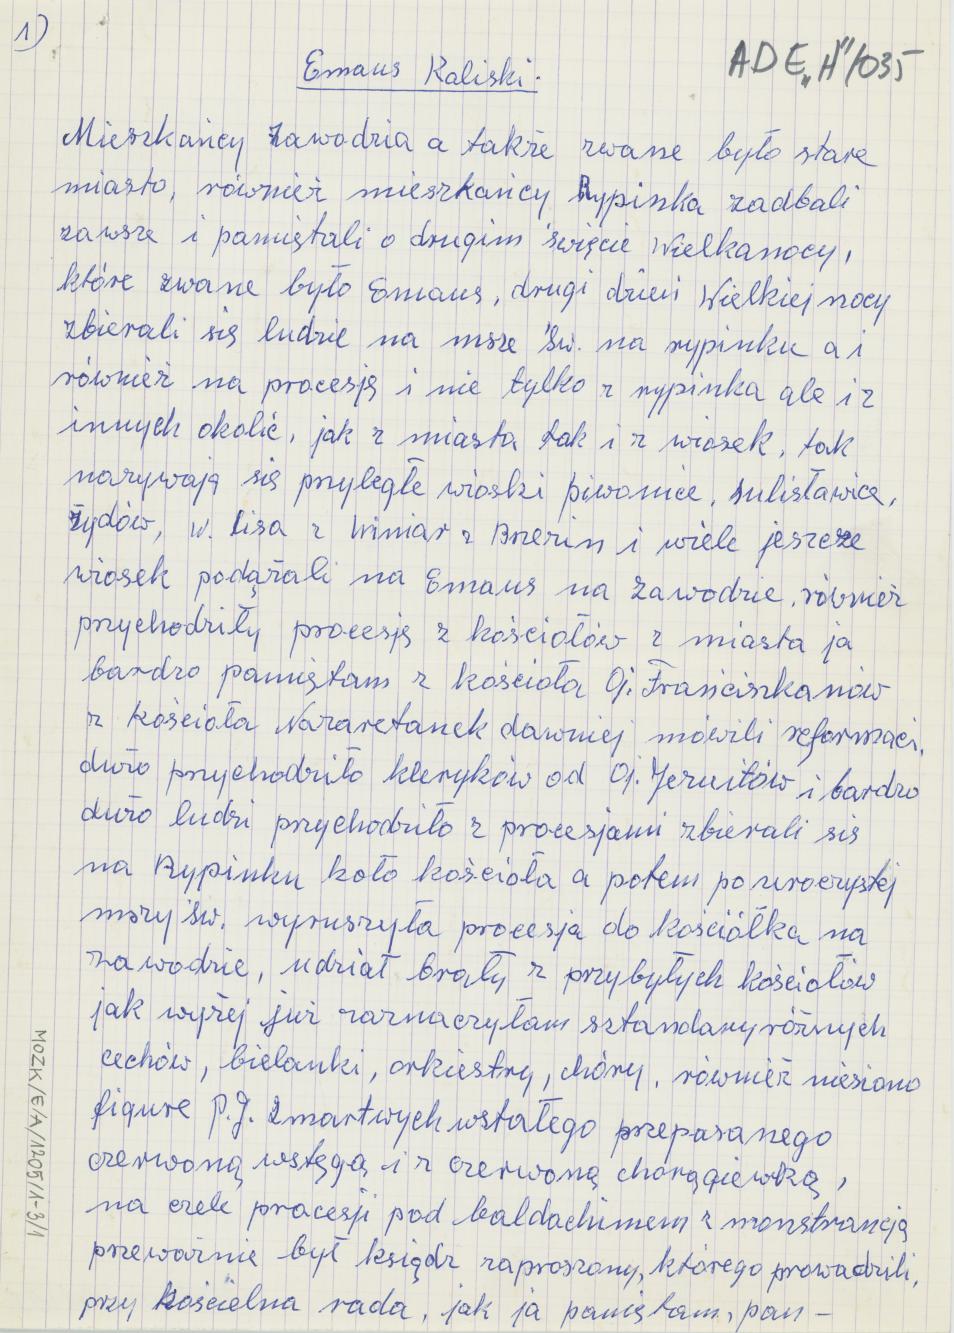 1)
ADE„H"/035
Emaus Kaliski.
Mieszkańcy Zawodzia a także zwane było stare
miasto, również mieszkańcy Rypinka zadbali
zawsze i pamiętali o drugim święcie Wielkanocy,
które zwane było Emaus, drugi dzień Wielkiej nocy
zbierali się ludzie na msze św. na rypinku a i
również na procesję i nie tylko z rypinka ale i z
innych okolic, jak z miasta tak i z wiosek, tak
nazywają się przyległe wioski piwonice, sulisławice,
żydów, w. Lisa z Winiar z i wiele jeszcze
wiosek podążali na Emaus na zawodzie, również
przychodziły procesję z kościołów z miasta ja
bardzo pamiętam z kościoła Oj. Franciszkanów
z kościoła Nazaretanek dawniej mówili reformaci,
dużo przychodziło kleryków od Oj. Jezuitów i bardzo
dużo ludzi przychodziło z procesjami zbierali się
na Rypinku koło kościoła a potem po uroczystej
mszy św. wyruszyła procesja do kościółka na
zawodzie, udział brały z przybyłych kościołów
jak wyżej już zaznaczyłam sztandary różnych
cechów, bielanki, orkiestry, chóry, również niesiono
figure P.J. Zmartwychwstałego przepasanego
czerwoną wstęgą i z czerwoną chorągiewką,
na czele procesji pod baldachimem z monstrancją
przeważnie był ksiądz zaproszony, którego prowadzili,
przy kościelna rada, jak ja pamiętam, pan –
MOZK/E/A/1205/1-3/1